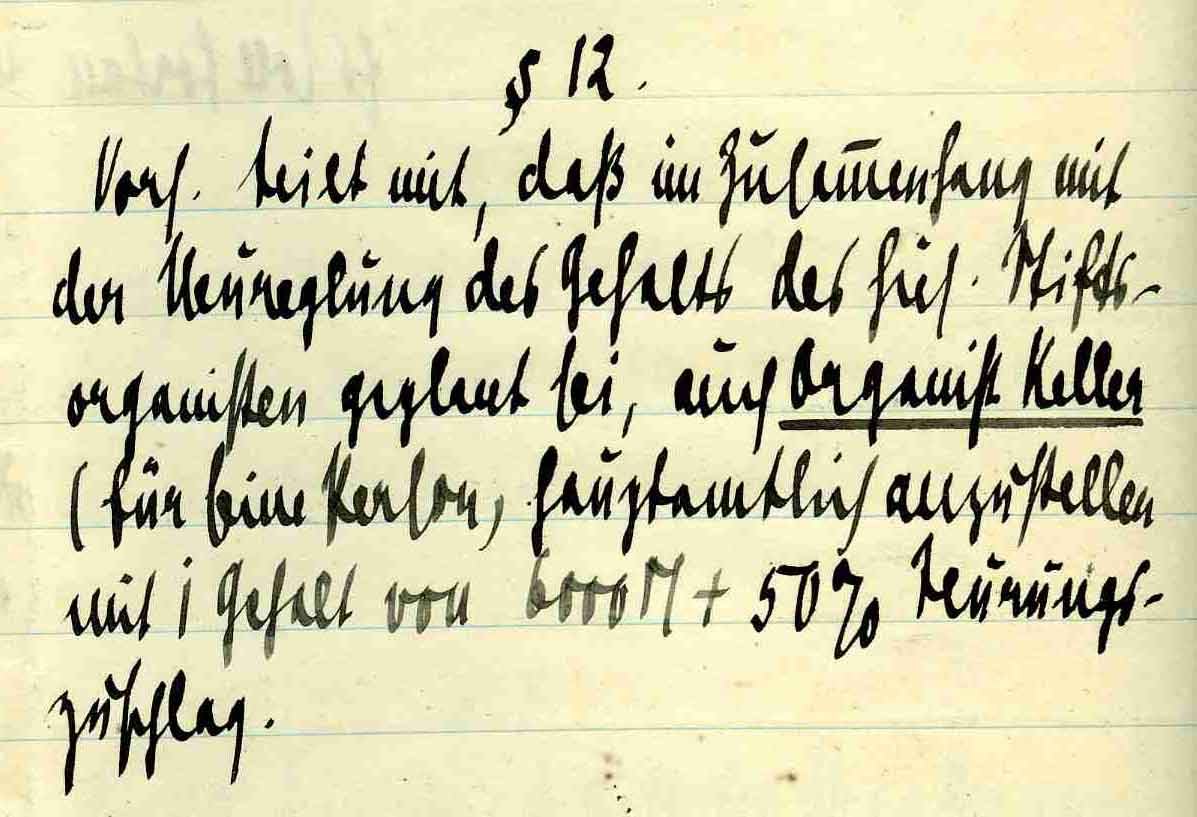 § 12.
Vors. teilt mit, daß im Zusam̅enhang mit
der Neureglung des Gehalts des hies. Stifts-
organisten geplant sei, auch Organist Keller
(für seine Person) hauptamtlich anzustellen
mit 1 Gehalt von 6000 M + 50% Teurungs-
zuschlag.